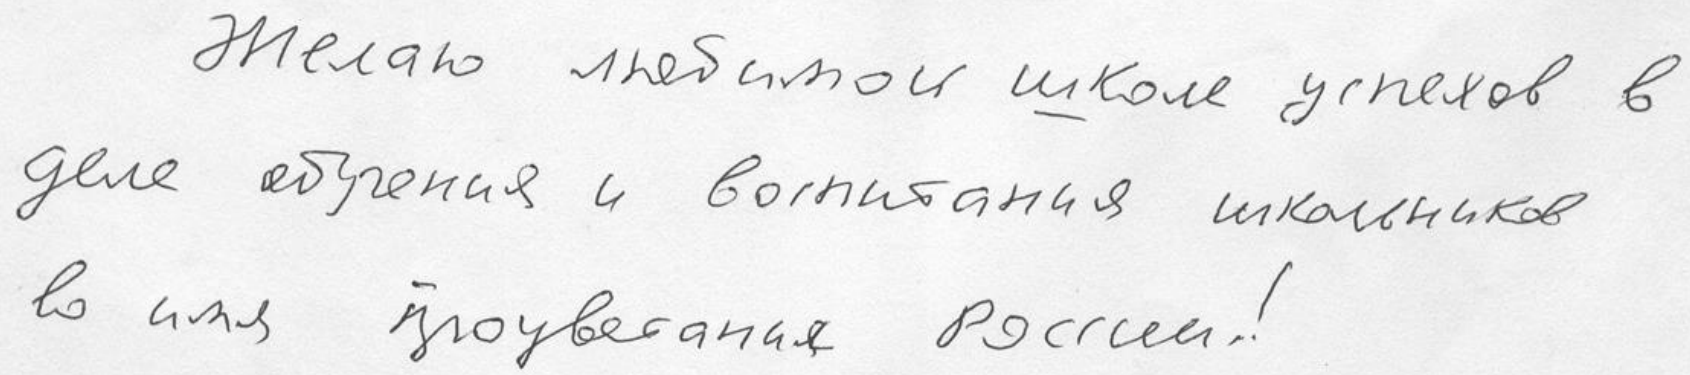 Желаю любимой школе успехов в
деле обучения и воспитания школьников
во имя процветания России!